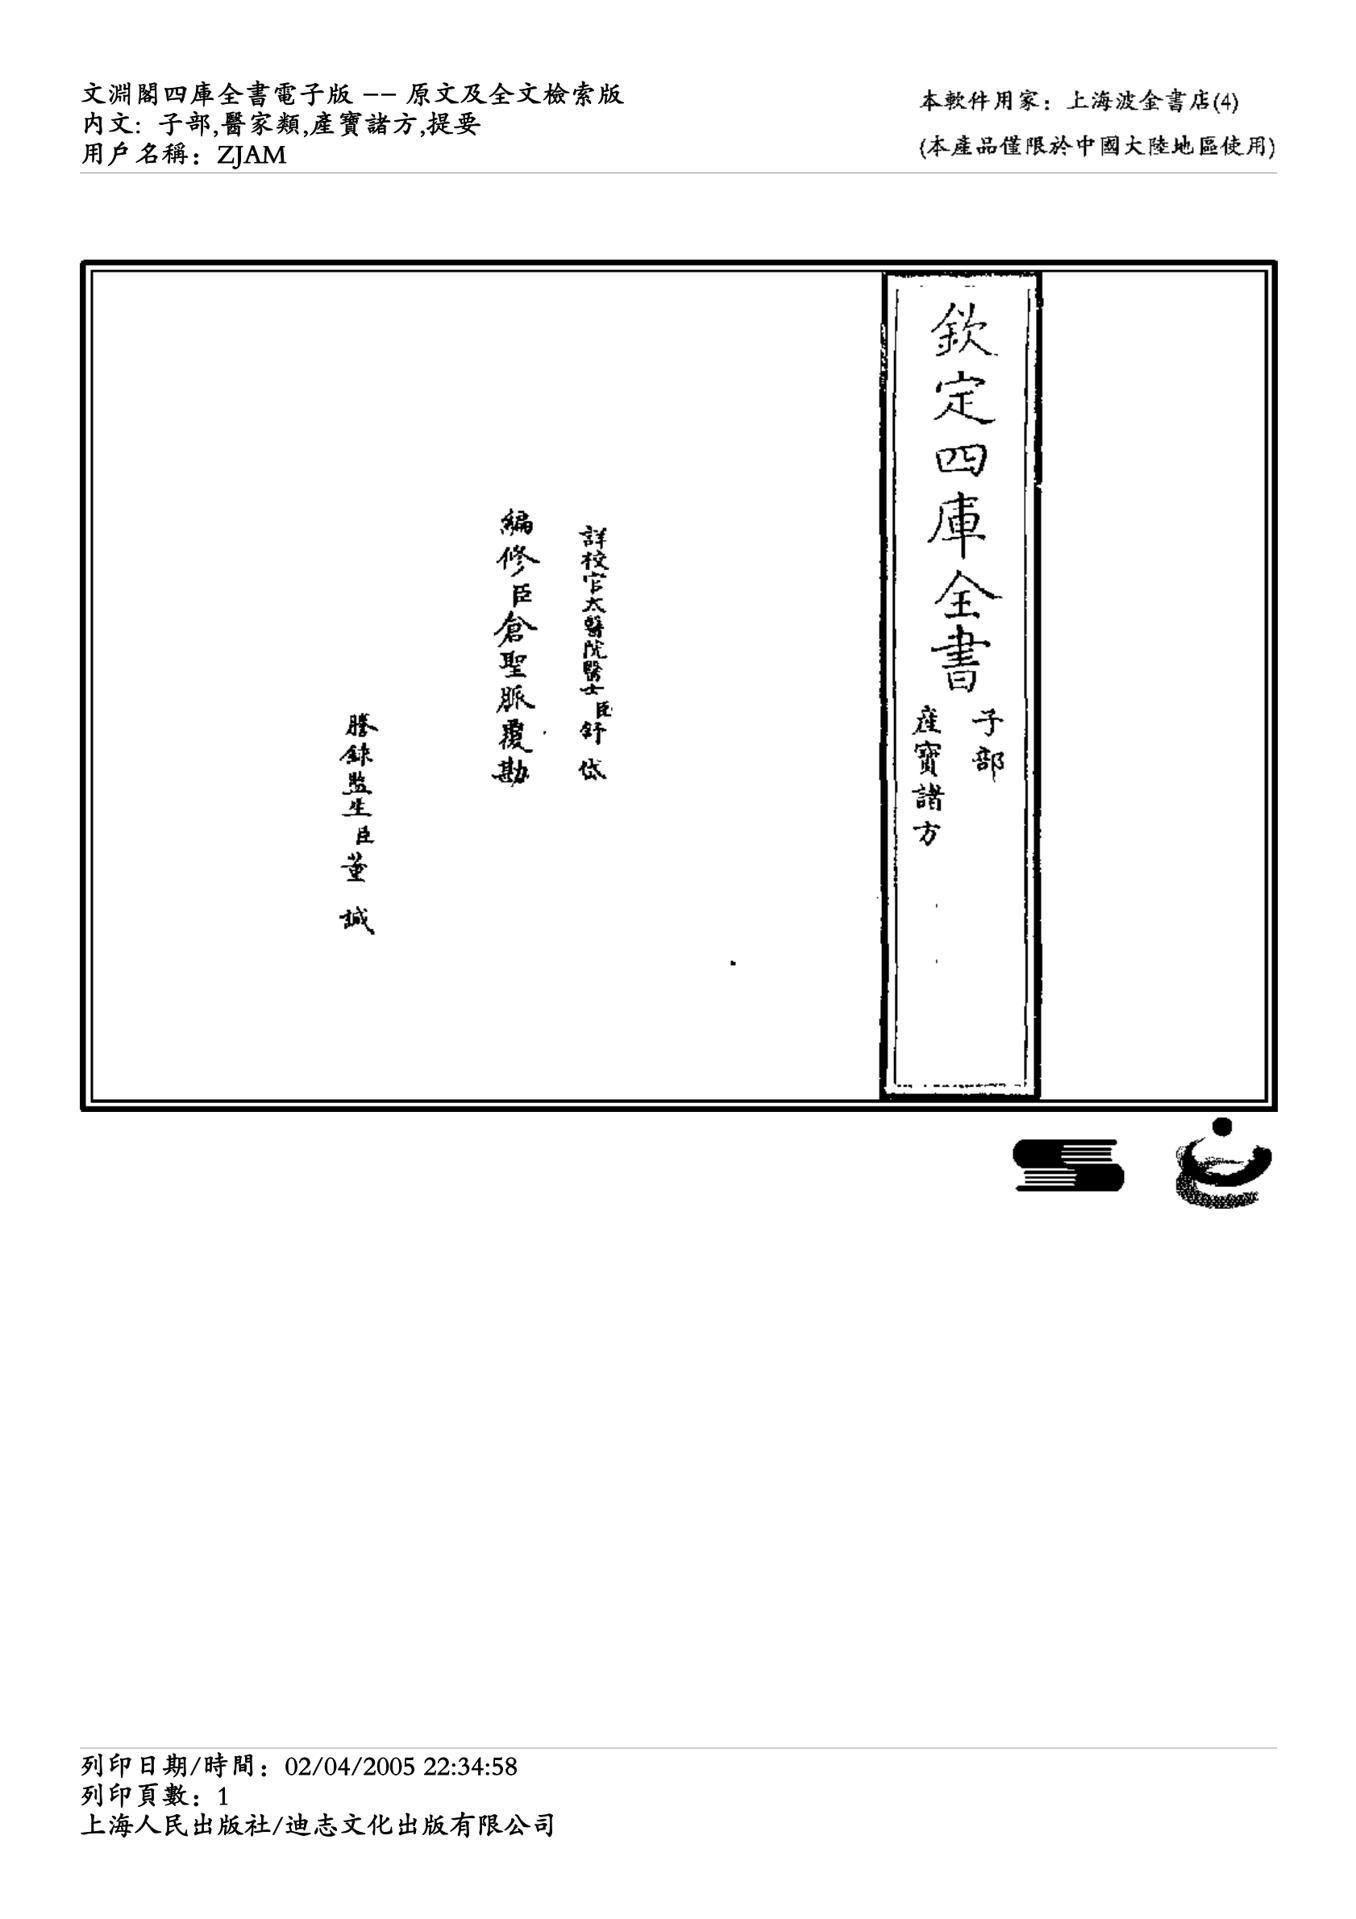 文淵閣四庫全書電子版 -- 原文及全文檢索版
内文：子部,醫家類,產寶諸方,提要
用戶名稱：ZJAM
本軟件用家：上海波金書店(4)
(本產品僅限於中國大陸地區使用)
欽定四庫全書
子部
產寶諸方
詳校官太醫院醫士臣舒岱
編修臣倉聖脈覆勘
謄錄監生臣董誠
列印日期/時間：02/04/2005 22:34:58
列印頁數：1
上海人民出版社/迪志文化出版有限公司